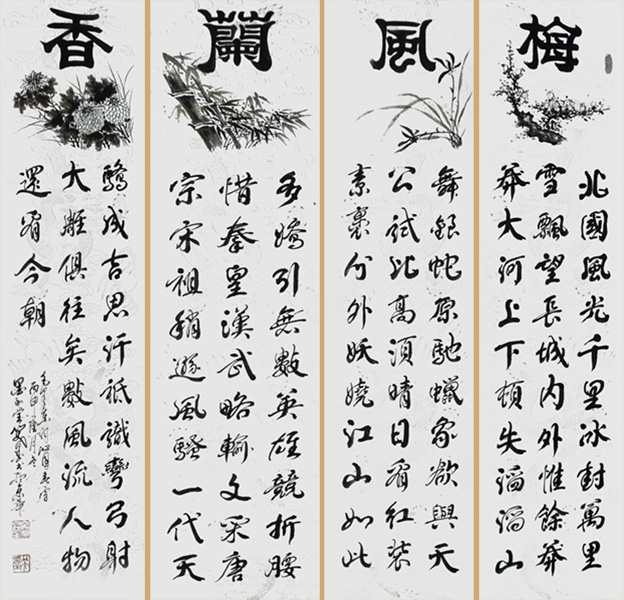 梅
北國風光千里冰封萬里
雪飄望長城內外惟餘莽
莽大河上下頓失滔滔山
風
舞銀蛇原馳蠟象欲與天
公試比高須晴日看紅裝
素裹分外妖嬈江山如此
蘭
多嬌引無數英雄競折腰
惜秦皇漢武略輸文采唐
宗宋祖稍遜風騷一代天
香
驕成吉思汗祗識彎弓射
大雕俱往矣數風流人物
還看今朝
毛澤東詞沁園春雪
丙申